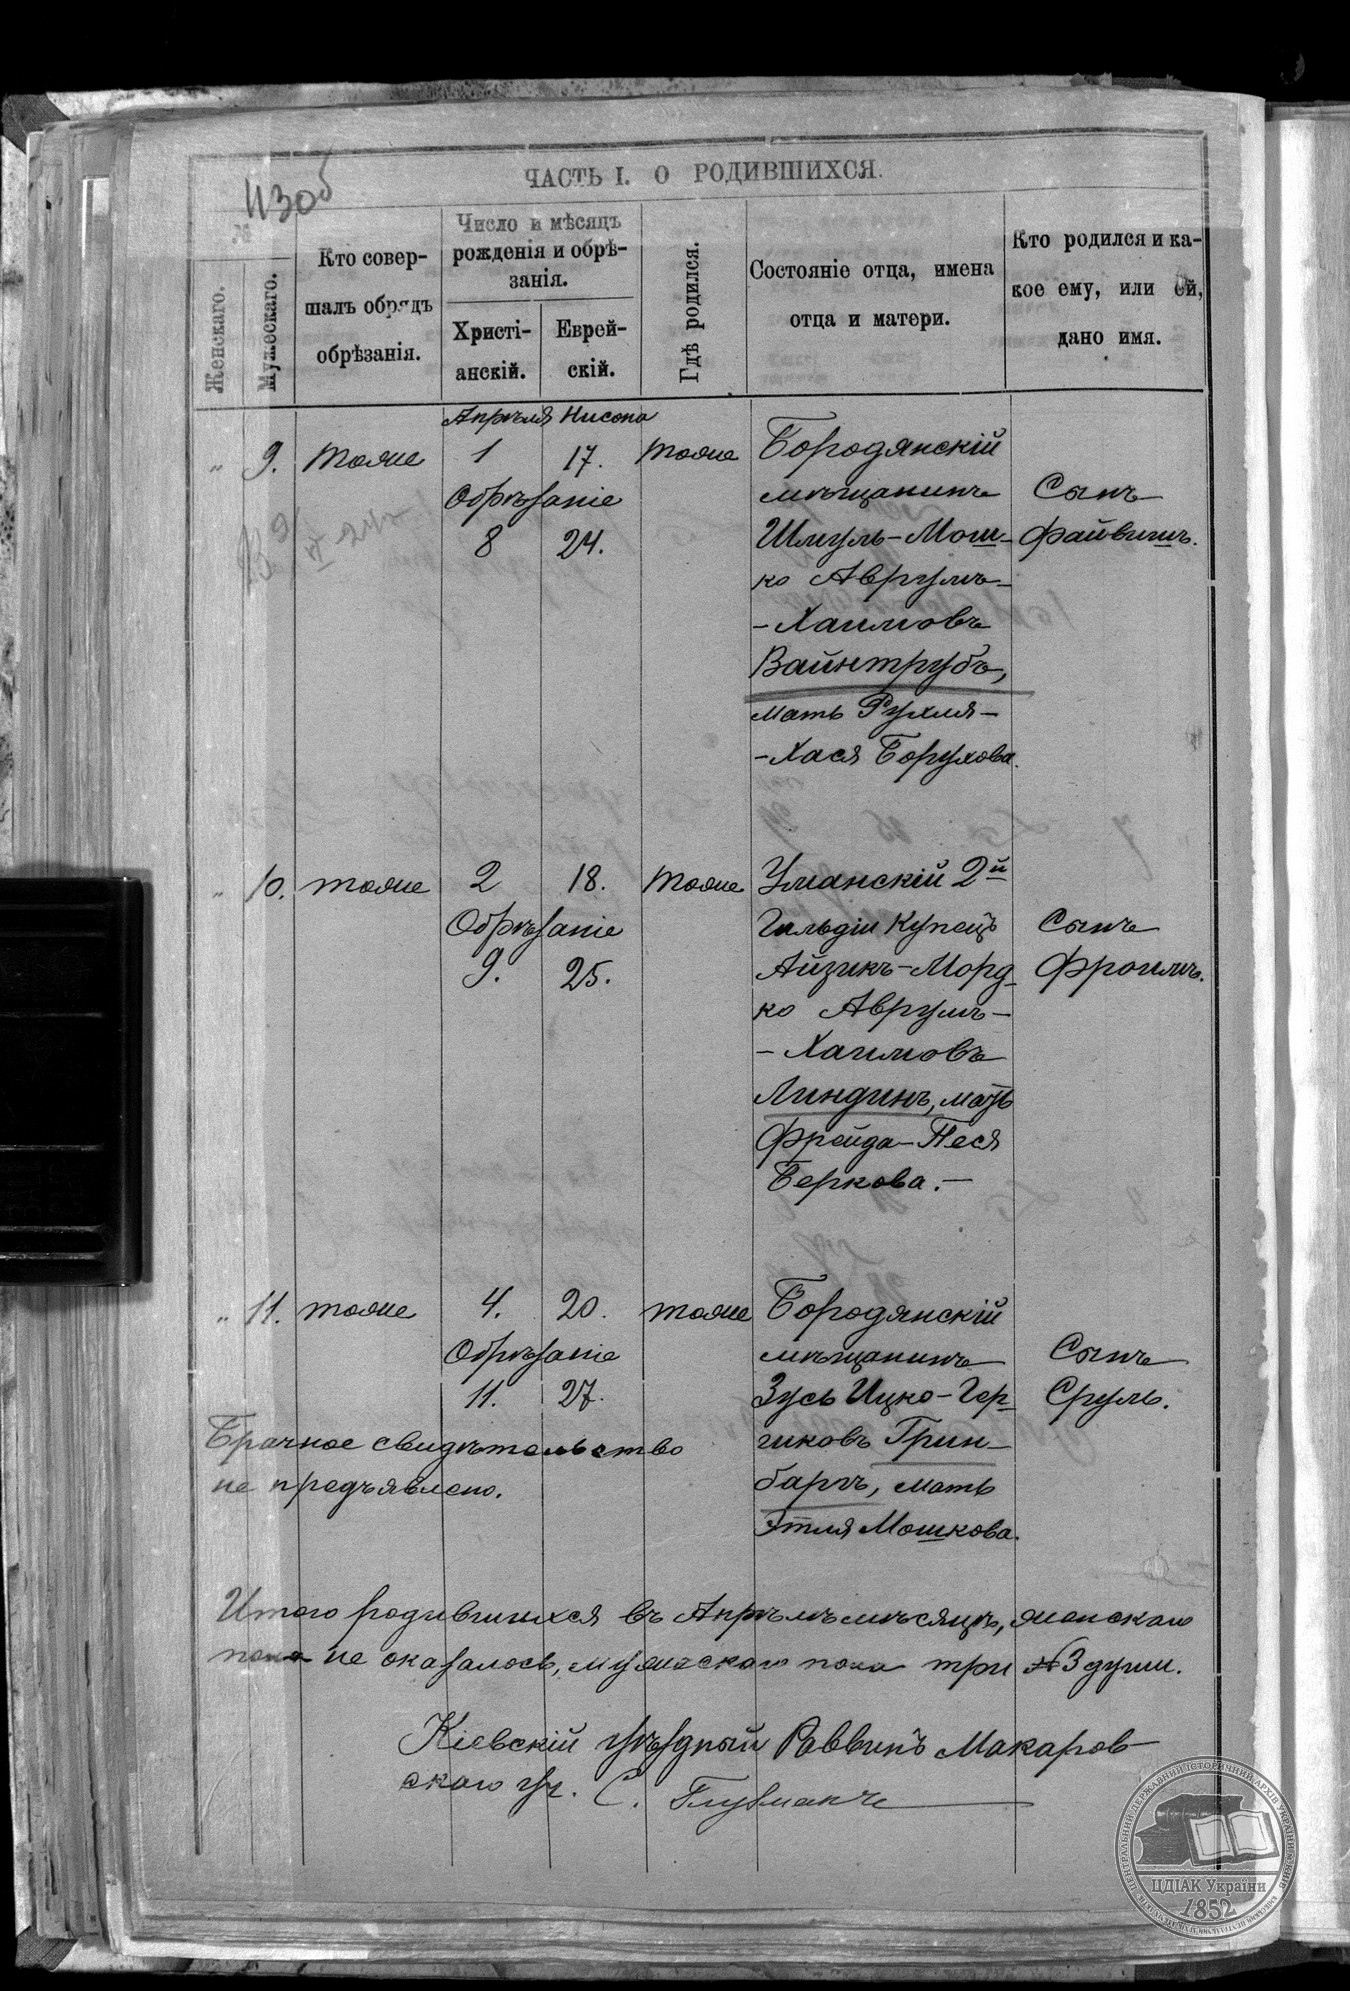 ЧАСТЬ I. О РОДИВШИХСЯ.
№
Женскаго.
Мужескаго.
Кто совер-
шалъ обрядъ
обрѣзанія.
Число и мѣсяцъ
рожденія и обрѣ-
занія.
Христі-
анскій.
Еврей-
скій.
Гдѣ родился.
Состояніе отца, имена
отца и матери.
Кто родился и ка-
кое ему, или ей,
дано имя.
Апрѣля Нисона
„ 9. тоже 1 17. тоже Бородянскій
Обрѣзаніе мѣщанинъ Сынъ
8 24. Шмуль-Мош- Файвишъ.
ко Аврумъ-
-Хаимовъ
Вайнтрубъ,
мать Рухля-
-Хася Борухова.
„ 10. тоже 2 18. тоже Уманскій 2й
Обрѣзаніе Гильдіи Купецъ Сынъ
9. 25. Айзикъ-Морд- Фроимъ.
ко Аврумъ-
-Хаимовъ
Линдинъ, мать
Фрейда-Песя
Беркова.—
„ 11. тоже 4. 20. тоже Бородянскій
Обрѣзаніе мѣщанинъ Сынъ
11. 27. Зусь Ицко-Гер- Сруль.
Брачное свидѣтельство шковъ Грин-
не предъявлено. баргъ, мать
Этля Мошкова.
Итого родившихся въ Апрѣлѣ мѣсяцѣ, женскаго
пола не оказалось, мужескаго пола три №3 души.
Кіевскій уѣздный Раввинъ Макаров-
скаго уч. С. Глузманъ
ЦДІАК України
1852